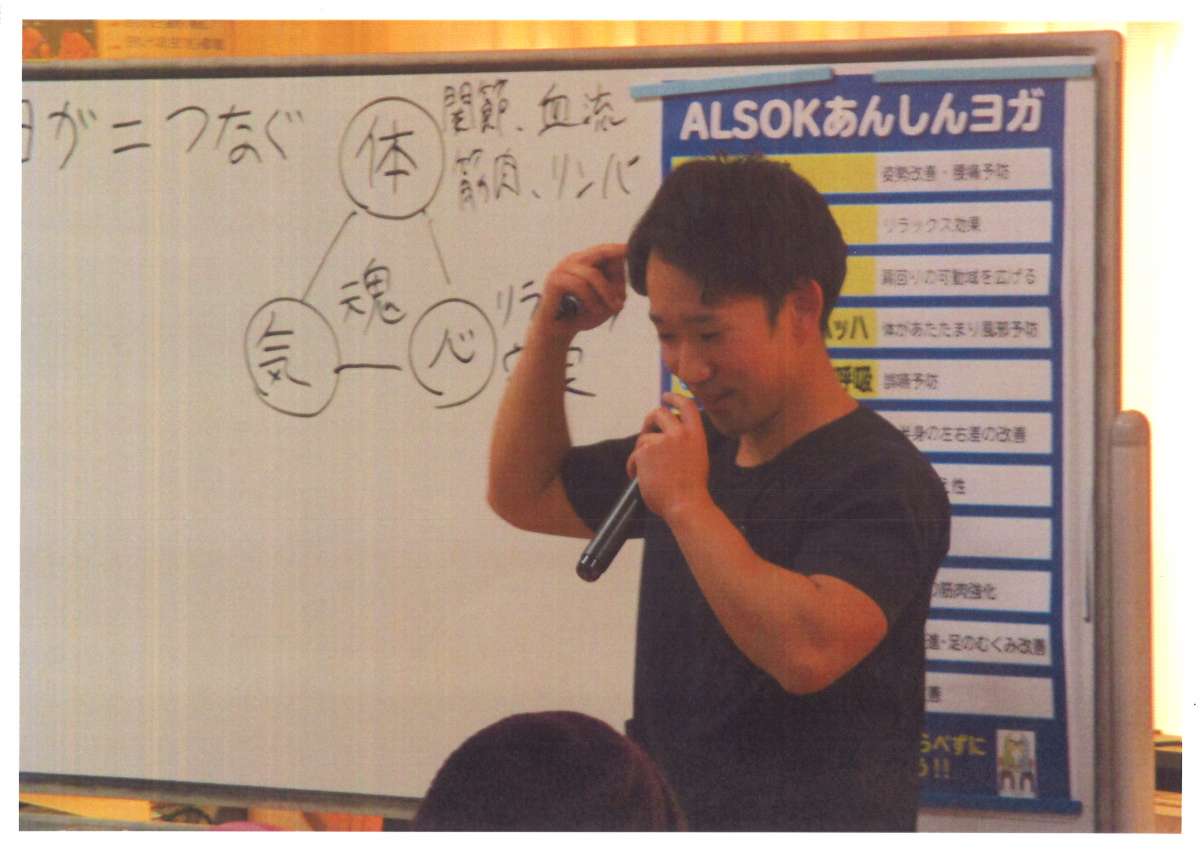 ヨガ＝つなぐ
体
関節、血流
筋肉、リンパ
魂
気
心
リラ
ALSOKあんしんヨガ
姿勢改善・腰痛予防
リラックス効果
肩回りの可動域を広げる
ハッハ 体があたたまり風邪予防
呼吸 誤嚥予防
半身の左右差の改善
性
の筋肉強化
進・足のむくみ改善
善
らべずに
う!!